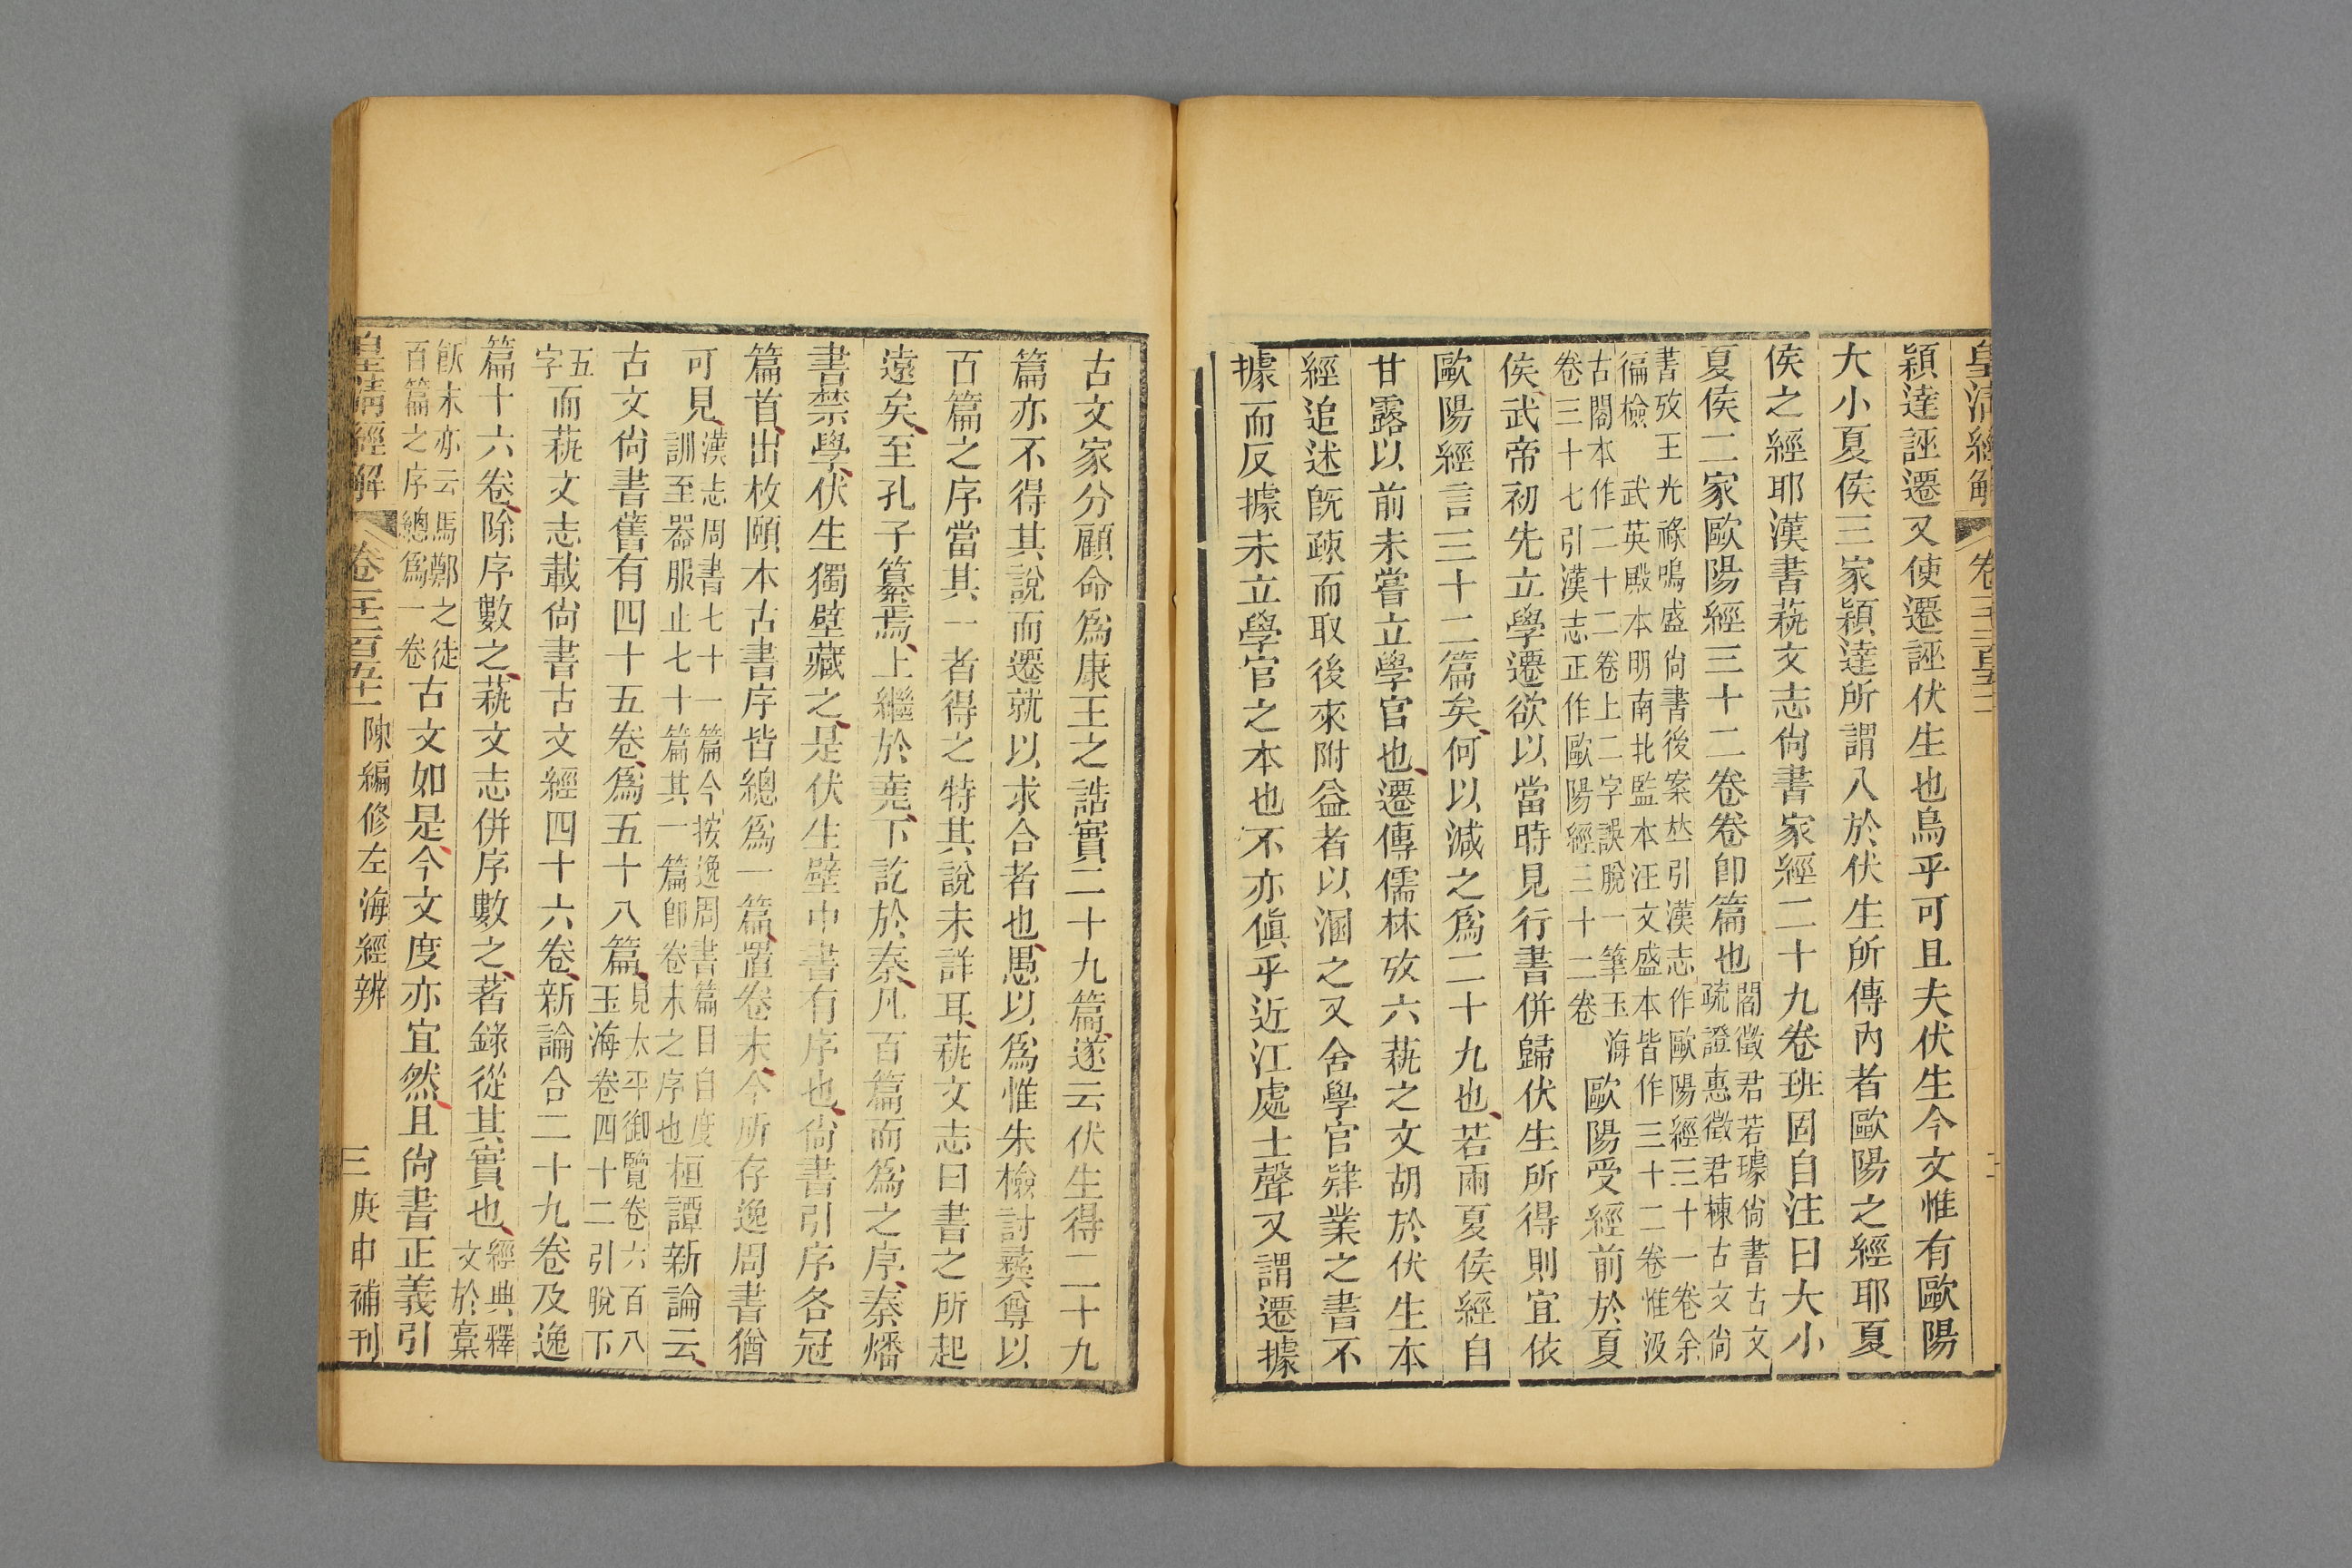 皇清經解 卷一千二百五十一
穎達誣遷又使遷誣伏生也烏乎可且夫伏生今文惟有歐陽
大小夏侯三家穎達所謂八於伏生所傳內者歐陽之經耶夏
侯之經耶漢書蓺文志尙書家經二十九卷班固自注曰大小
夏侯二家歐陽經三十二卷卷卽篇也閻徵君若璩尙書古文
疏證惠徵君棟古文尙
書攷王光祿鳴盛尙書後案竝引漢志作歐陽經三十一卷余
徧檢 武英殿本明南北監本汪文盛本皆作三十二卷惟汲
古閣本作二十二卷上二字誤脫一筆玉海
卷三十七引漢志正作歐陽經三十二卷
歐陽受經前於夏
侯武帝初先立學遷欲以當時見行書併歸伏生所得則宜依
歐陽經言三十二篇矣何以減之爲二十九也若兩夏侯經自
甘露以前未嘗立學官也遷傳儒林攷六蓺之文胡於伏生本
經追述旣疎而取後來附益者以溷之又舍學官肄業之書不
據而反據未立學官之本也不亦傎乎近江處士聲又謂遷據
古文家分顧命爲康王之誥實二十九篇遂云伏生得二十九
篇亦不得其說而遷就以求合者也愚以爲惟朱檢討彝尊以
百篇之序當其一者得之特其說未詳耳蓺文志曰書之所起
遠矣至孔子纂焉上繼於堯下訖於秦凡百篇而爲之序秦燔
書禁學伏生獨壁藏之是伏生壁中書有序也尙書引序各冠
篇首出枚頤本古書序皆總爲一篇置卷末今所存逸周書猶
可見漢志周書七十一篇今按逸周書篇目自度
訓至器服止七十篇其一篇卽卷末之序也
桓譚新論云
古文尙書舊有四十五卷爲五十八篇見太平御覽卷六百八
玉海卷四十二引脫下
五
字
而蓺文志載尙書古文經四十六卷新論合二十九卷及逸
篇十六卷除序數之蓺文志併序數之著錄從其實也經典釋
文於稾
飫末亦云馬鄭之徒
百篇之序總爲一卷
古文如是今文度亦宜然且尙書正義引
皇清經解 卷一千二百五十一 陳編修左海經辨 三 庚申補刊